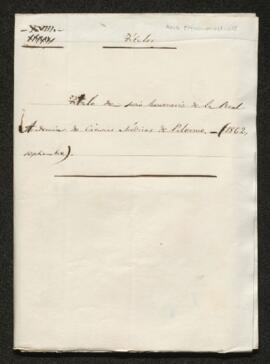 XVIII.
Títulos
Título de socio honorario de la Real
Academia de Ciencias Médicas de Palermo. - (1862,
septiembre).